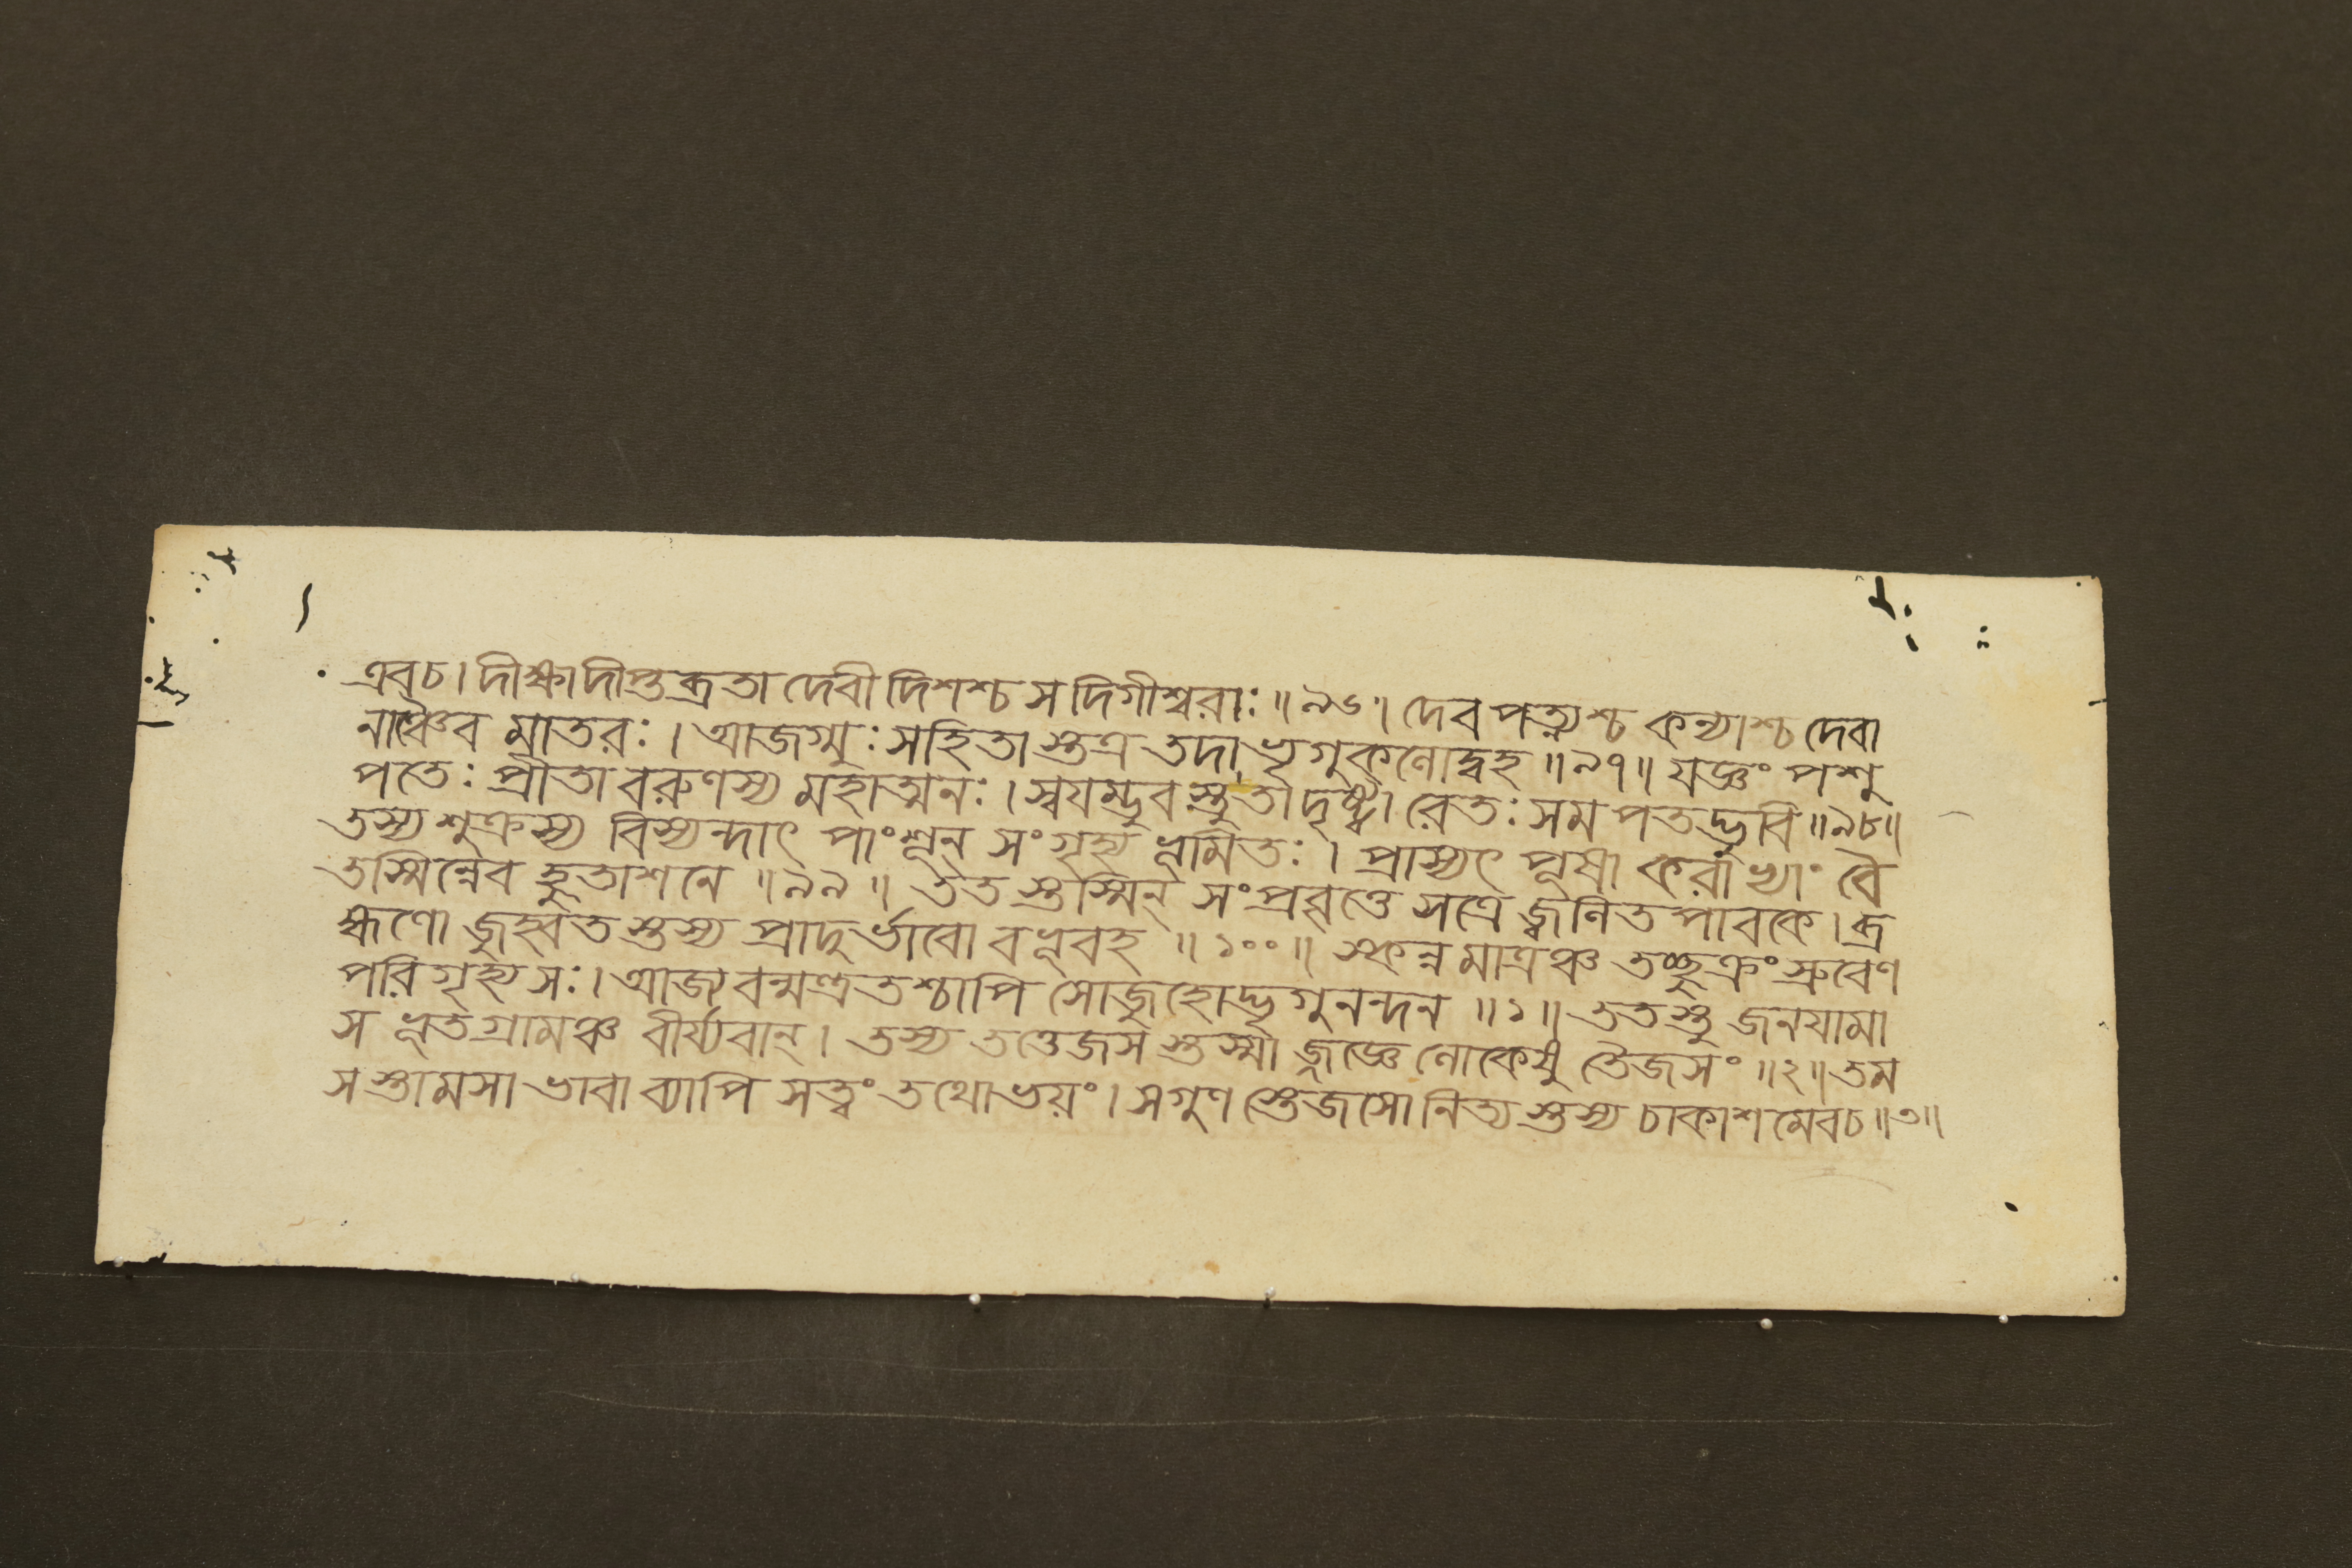 এব চ। দীক্ষা দীপ্তব্রতা দেবী দিশশ্চ স দিগীশ্বরাঃ॥৯৬॥ দেবপত্ন্যশ্চ কন্যাশ্চ দেবা
নাঞ্চৈব মাতরঃ। আজগ্মুঃ সহিতাস্তত্র তদা ভৃগুকুলোদ্বহ॥৯৭॥ যজ্ঞং পশু
পতেঃ প্রীতা বরুণস্য মহাত্মনঃ। স্বয়ম্ভুবস্তু তা দৃষ্ট্বা রেতঃ সমপতদ্ভুবি॥৯৮॥
তস্য শুক্রস্য বিস্যন্দাৎ পাংশূন সংগৃহ্য ভূমিতঃ। প্রাস্যৎ পূষা করাভ্যাং বৈ
তস্মিন্নেব হুতাশনে॥৯৯॥ ততস্তস্মিন্ সংপ্রবৃত্তে সত্রে জ্বলিতপাবকে। ব্র
হ্মণো জুহ্বতস্তস্য প্রাদুর্ভাবো বভূব হ॥১০০॥ স্কন্নমাত্রঞ্চ তচ্ছুক্রং স্রুবেণ
পরিগৃহ্য সঃ। আজ্যবন্মন্ত্রতশ্চাপি সোজুহোদ্ভৃগুনন্দন॥১॥ ততস্তু জনযামা
স ভূতগ্রামঞ্চ বীর্য্যবান্। তস্য তত্তেজসস্তস্মা জ্জজ্ঞে লোকেষু তৈজসং॥২॥ তম
সস্তামসা ভাবা ব্যাপি সত্ত্বং তথোভয়ং। সগুণস্তেজসো নিত্যস্তস্য চাকাশমেব চ॥৩॥